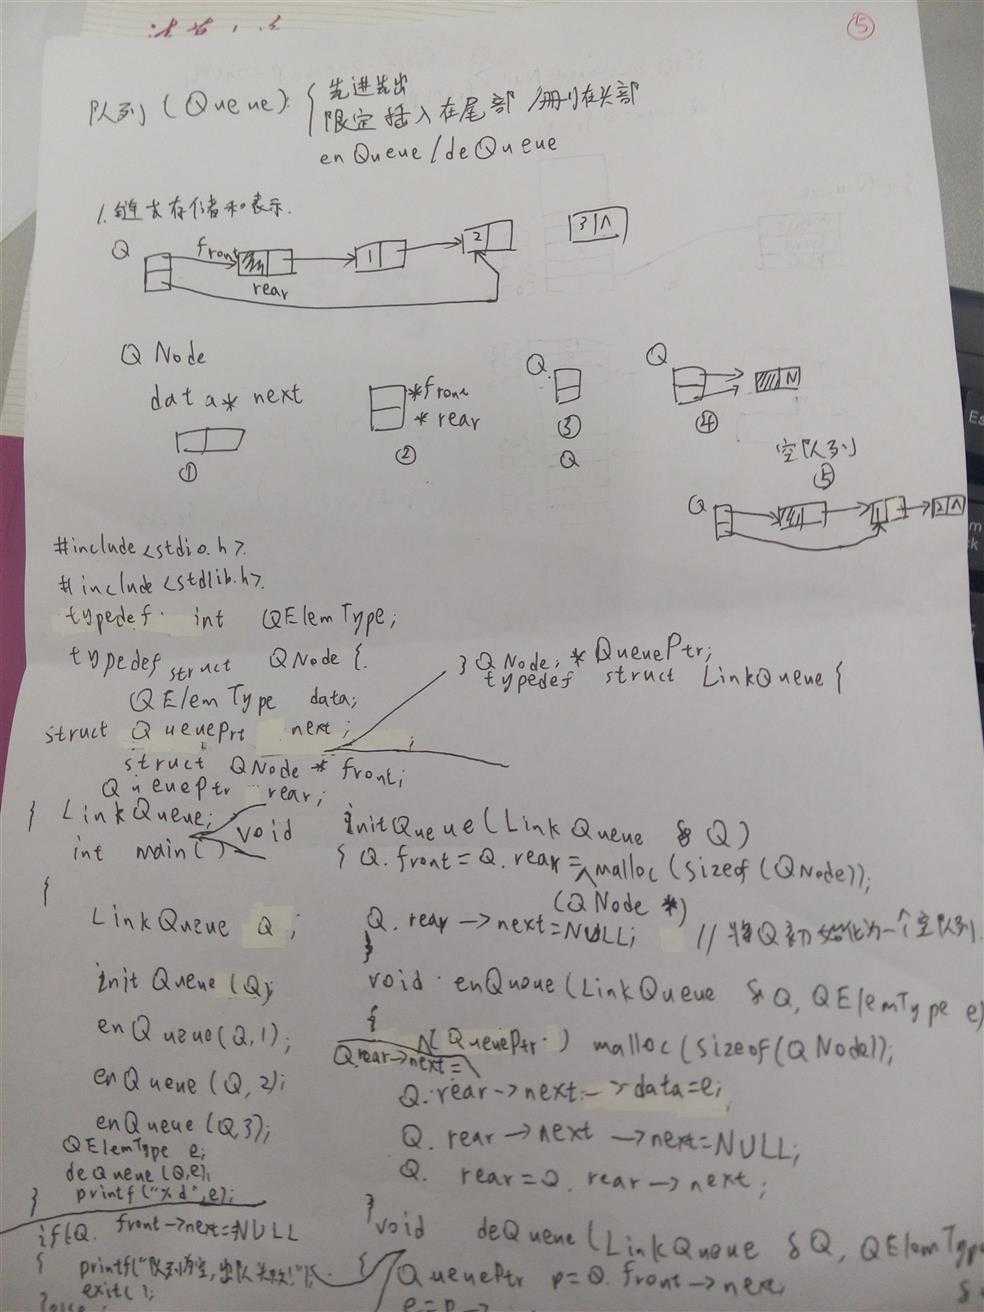 ⑤
队列 (Queue): { 先进先出
限定插入在尾部/删除在头部
enQueue/deQueue
1. 链式存储和表示.
Q front 1 2 3 Λ
rear
Q Node
data * next
*front
* rear
Q
Q
① ② ③ ④
Q
空队列
⑤
Q 1 2 Λ
#include <stdio.h>.
#include <stdlib.h>.
typedef int QElemType;
typedef struct QNode {
} QNode, *QueuePtr;
typedef struct LinkQueue {
QElemType data;
struct QueuePrt next;
struct QNode * front;
QueuePtr rear;
} LinkQueue;
void initQueue(LinkQueue & Q)
int main()
{ Q.front = Q.rear = malloc(sizeof(QNode));
(QNode *)
{
LinkQueue Q;
Q.rear —>next=NULL; //将Q初始化为一个空队列.
}
initQueue(Q);
void enQueue(LinkQueue & Q, QElemType e)
{
enQueue(Q,1);
Q.rear—>next = (QueuePtr) malloc(sizeof(QNode));
enQueue(Q,2);
Q.rear —>next —>data=e;
enQueue(Q,3);
Q.rear —>next —>next=NULL;
QElemType e;
deQueue(Q,e);
Q.rear=Q.rear—>next;
} printf("%d",e);
}
void deQueue(LinkQueue &Q, QElemType
if(Q.front—>next==NULL
{ printf("队列为空,出队失败!");
{ QueuePtr p=Q.front—>next
exit();
e=p—>